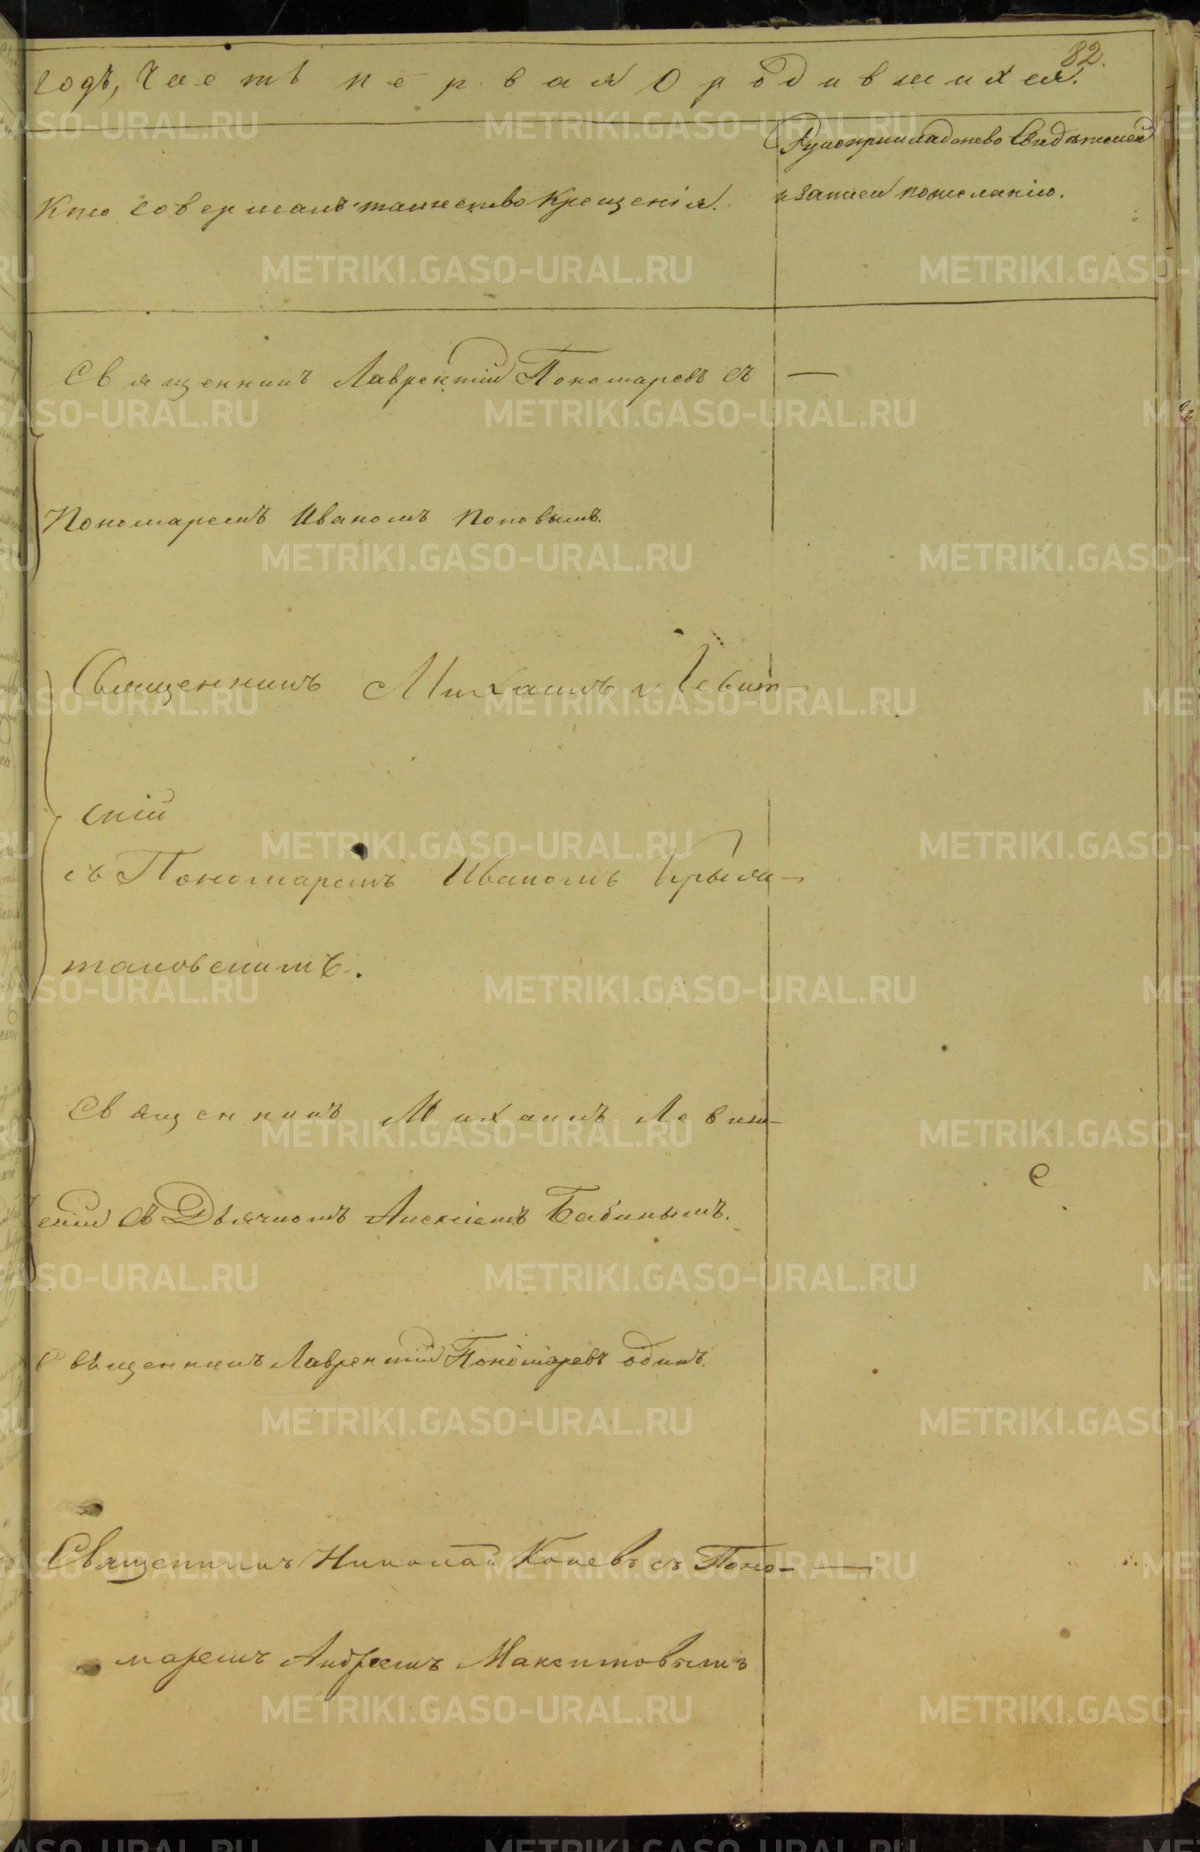 82.
годъ, Часть первая о родившихся.
Кто совершалъ таинство крещенія.
Рукоприкладство свидѣтелей
записи по желанію.
Священникъ Лаврентій Пономаревъ съ —
Пономаремъ Иваномъ Поповымъ.
Священникъ Михаилъ Левит-
скій
съ Пономаремъ Иваномъ
Священникъ Михаилъ Левит-
скій съ Дьячкомъ Алексіемъ Бабинымъ.
Священникъ Лаврентій Пономаревъ одинъ.
Священникъ Николай Коневъ съ Поно- —
маремъ Андреемъ Максимовымъ